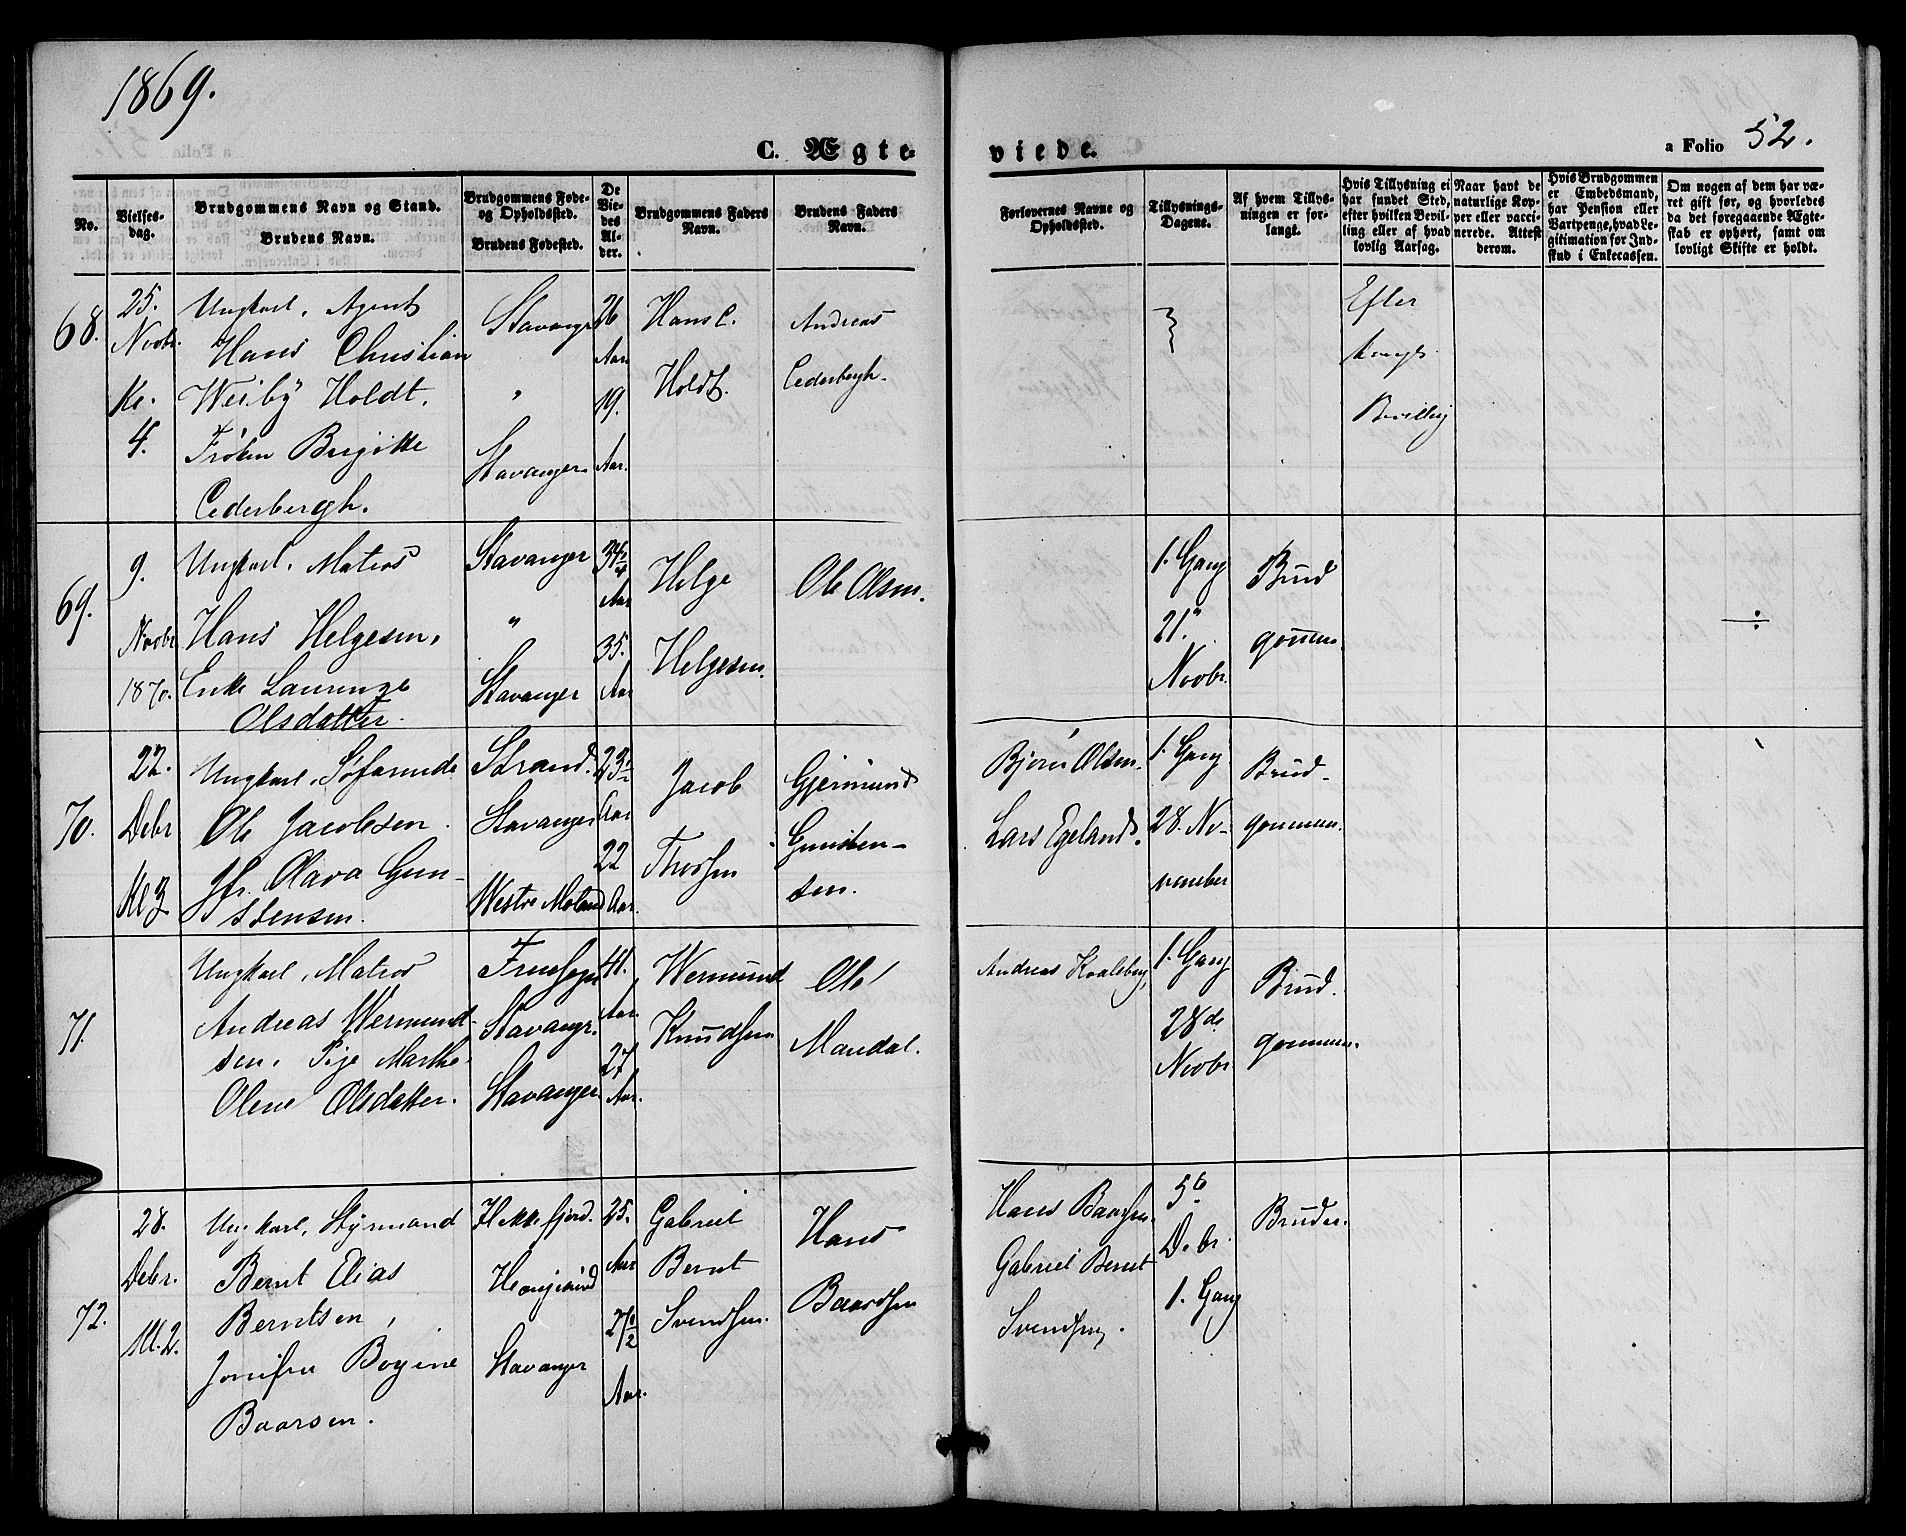 1869.
C. Ægteviede.
a Folio 52.
No.
Vielsesdag.
Brudgommens Navn og Stand.
Brudens Navn.
Brudgommens Føde- og Opholdssted.
Brudens Fødested.
De Viedes Alder.
Brudgommens Faders Navn.
Brudens Faders Navn.
Forlovernes Navne og Opholdssted.
Tillysnings-Dagene.
Af hvem Tillysningen er forlangt.
Hvis Tillysning ei har fundet Sted, efter hvilken Bevilling eller af hvad lovlig Aarsag.
Naar havt de naturlige Kopper eller vaccinerede. Attest derom.
Hvis Brudgommen er Embedsmand, har Pension eller Vartpenge, hvad Legitimation for Indskud i Enkecassen.
Om nogen af dem har været gift før, og hvorledes da det foregaaende Ægteskab er ophørt, samt om lovligt Skifte er holdt.
68.
25.
Novbr.
Kl.
4.
Ungkarl, Agent
Hans Christian
Weiby Holdt.
Frøken Birgitte
Cederbergh.
Stavanger
"
Stavanger
26
Aar
19.
Aar.
Hans C.
Holdt.
Andreas
Cederbergh.
Efter
kongl.
Bevillig
69.
9.
Novbr
1870.
Ungkarl, Matros
Hans Helgesen,
Enke Laurenze
Olsdatter.
Stavanger
"
Stavanger
34
Aar
35.
Aar
Helge
Helgesen.
Ole Olsen.
1. Gang
21"
Novbr.
Brud
gommen.
÷
70.
22.
Debr
Kl 3
Ungkarl, Søfarende
Ole Jacobsen.
Jfr. Olava Gun-
stensen.
Strand.
Stavanger
Westre Moland
23
Aar
22
Aar.
Jacob
Thorsen
Gjermund
Gunsten-
sen.
Bjørn Olsen.
Lars Egeland.
1. Gang
28. No-
vember
Brud-
gommen.
71.
Ungkarl, Matros
Andreas Wermund-
sen. Pige Marthe
Olene Olsdatter.
Stavangr.
Stavanger
41.
Aar.
27
Aar.
Wermund
Knudsen
Ole
Mandal.
Andreas Kvaleberg,
1. Gang
28de
Novbr
Brud.
gommen.
72.
28.
Debr.
Kl. 2.
Ungkarl, Styrmand
Bernt Elias
Berntsen,
Jomfru Bogine
Baarsen.
Hekkefjord.
Haugesund
Stavanger
25.
Aar
27 1/2
Aar.
Gabriel
Bernt
Svendsen.
Hans
Baardsen
Hans Baarsen.
Gabriel Bernt
Svendsen.
5t
Debr.
1. Gang
Bruden.